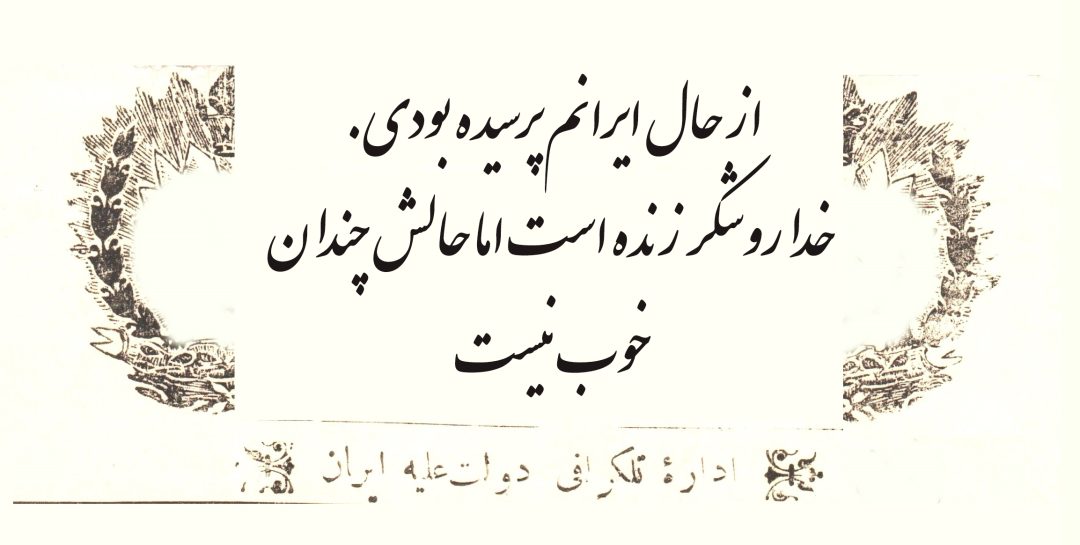 از حال ایرانم پرسیده بودی.
خدا رو شکر زنده است اما حالش چندان
خوب نیست
ادارهٔ تلگرافی دولت علیه ایران